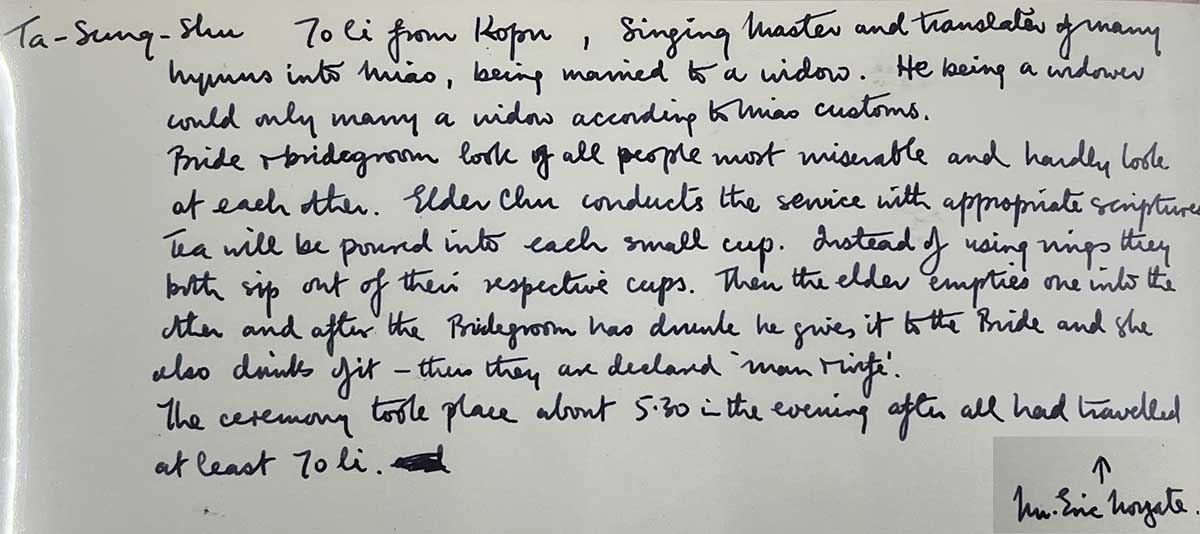 Ta-Sung-Shu 70 li from Kopu, Singing Master and translater of many
hymns into Miao, being married to a widow. He being a widower
could only marry a widow according to Miao customs.
Bride + bridegroom look of all people most miserable and hardly look
at each other. Elder Chu conducts the service with appropriate scriptures
Tea will be poured into each small cup. Instead of using rings they
both sip out of their respective cups. Then the elder empties one into the
other and after the Bridegroom has drunk he gives it to the Bride and she
also drinks of it – thus they are declared 'man + wife'.
The ceremony took place about 5.30 in the evening after all had travelled
at least 70 li.
↑
Mr. Eric Norgate.